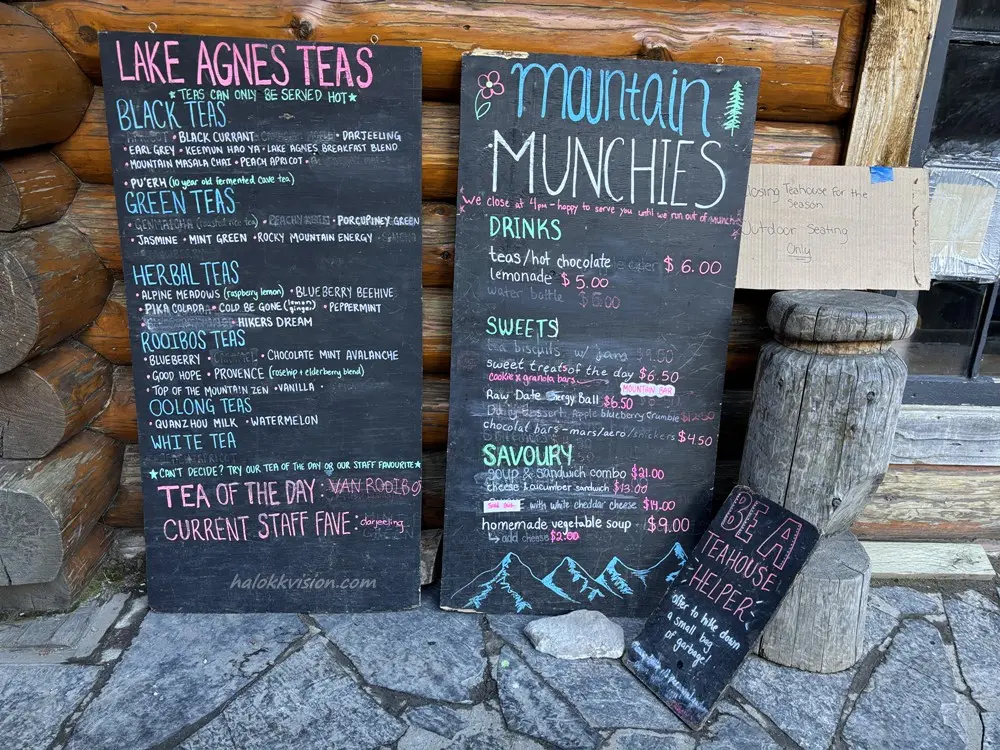 LAKE AGNES TEAS
★TEAS CAN ONLY BE SERVED HOT★
BLACK TEAS
•BLACK CURRANT •DARJEELING
•EARL GREY •KEEMUN HAO YA •LAKE AGNES BREAKFAST BLEND
•MOUNTAIN MASALA CHAI •PEACH APRICOT •
•PU'ERH (10 year old fermented cave tea)
GREEN TEAS
GENMAICHA (roasted rice tea) • •PORCUPINEY GREEN
•JASMINE •MINT GREEN •ROCKY MOUNTAIN ENERGY
HERBAL TEAS
•ALPINE MEADOWS (raspberry lemon) •BLUEBERRY BEEHIVE
•PIKA COLADA •COLD BE GONE (lemon ginger) •PEPPERMINT
•HIKERS DREAM
ROOIBOS TEAS
•BLUEBERRY •CARAMEL •CHOCOLATE MINT AVALANCHE
•GOOD HOPE •PROVENCE (rosehip + elderberry blend)
•TOP OF THE MOUNTAIN ZEN •VANILLA •
OOLONG TEAS
•QUANZHOU MILK •WATERMELON
WHITE TEA
★CAN'T DECIDE? TRY OUR TEA OF THE DAY OR OUR STAFF FAVOURITE★
TEA OF THE DAY: VAN ROOIBO
CURRENT STAFF FAVE: darjeeling
halokkvision.com
mountain
MUNCHIES
We close at 4pm - happy to serve you until we run out of munchies
DRINKS
teas/hot chocolate $6.00
lemonade $5.00
water bottle
SWEETS
tea biscuits w/ jams
sweet treats of the day $6.50
cookie & granola bars
MOUNTAIN BAR
Raw Date Energy Ball $6.50
Daily dessert: Apple blueberry crumble $12.50
chocolat bars - mars/aero/snickers $4.50
SAVOURY
soup & sandwich combo $21.00
cheese & cucumber sandwich $13.00
with white cheddar cheese $14.00
homemade vegetable soup $9.00
↳ add cheese $2.00
Closing Teahouse for the
Season
Outdoor Seating
Only
BE A
TEAHOUSE
HELPER
offer to hike down
a small bag
of garbage!